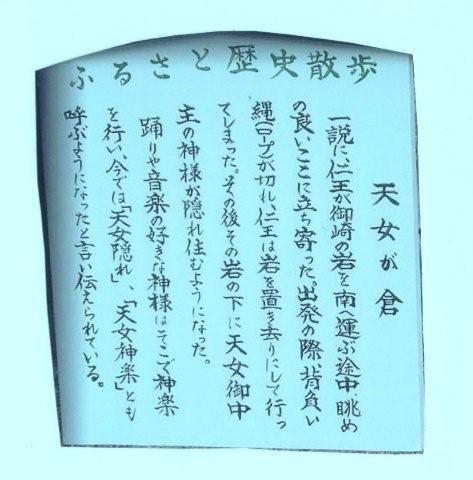 ふるさと歴史散歩
天女が倉
一説に、仁王が御崎の岩を南へ運ぶ途中、眺め
の良いここに立ち寄った。出発の際、背負い
縄(ロープ)が切れ、仁王は岩を置き去りにして行っ
てしまった。その後その岩の下に天女御中
主の神様が隠れ住むようになった。
踊りや音楽の好きな神様はそこで神楽
を行い、今では「天女隠れ」、「天女神楽」とも
呼ぶようになったと言い伝えられている。